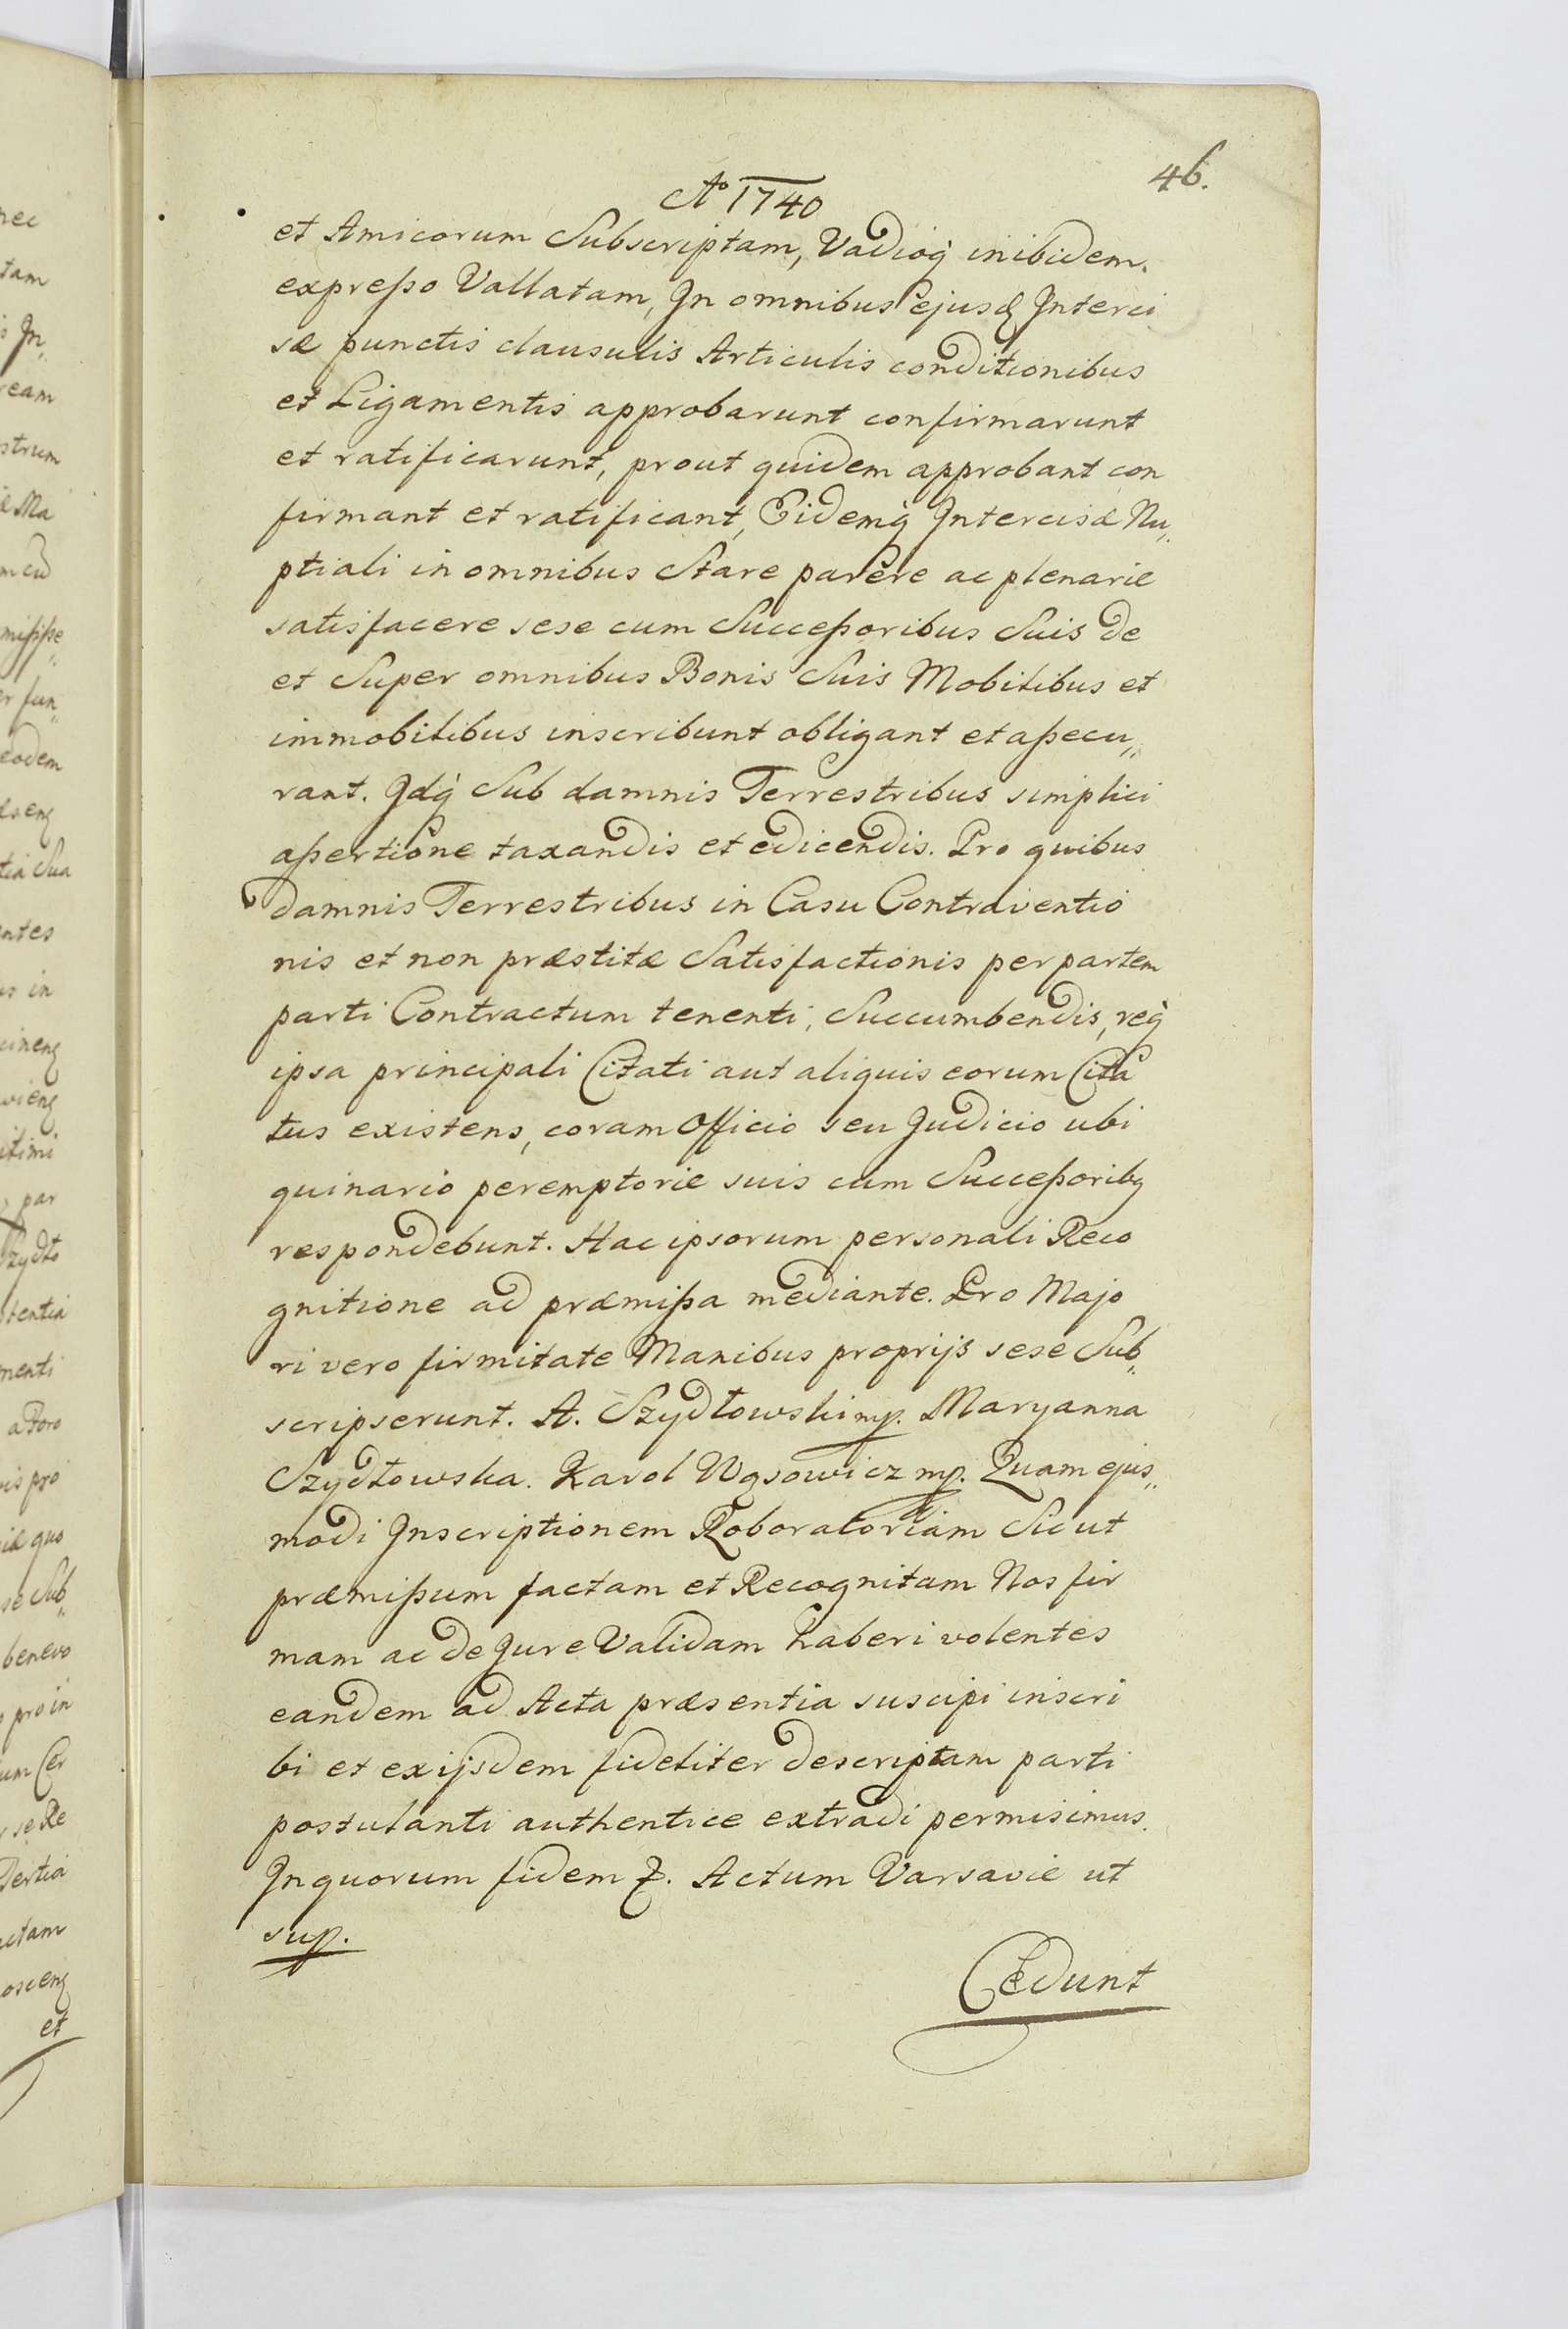 46.
Ao 1740
et Amicorum Subscriptam, Vadioq̀ inibidem.
expreßo Vallatam, Jn omnibus ejusd Jnterci
sæ punctis clausulis Articulis conditionibus
et Ligamentis approbarunt confirmarunt
et ratificarunt, prout quidem approbant con
firmant et ratificant, Eidemq̀ Jntercisæ Nu„
ptiali in omnibus Stare parere ac plenarie
satisfacere sese cum Succeßoribus Suis de
et Super omnibus Bonis Suis Mobilibus et
immobilibus inscribunt obligant et aßecu„
rant. Jdq̀ Sub damnis Terrestribus simplici
aßertione taxandis et edicendis. Pro quibus
damnis Terrestribus in Casu Contraventio
nis et non præstitæ Satisfactionis per partem
parti Contractum tenenti, Succumbendis, req̀
ipsa principali Citati aut aliquis eorum Cita
tus existens, coram Officio seu Judicio ubi
quinario peremptorie suis cum Succeßoribq
respondebunt. Hac ipsorum personali Reco
gnitione ad præmißa mediante. Pro Majo
ri vero firmitate Manibus proprijs sese Sub„
scripserunt. A. Szydłowski mp. Maryanna
Szydłowska. Karol Wąsowicz mp. Quam ejus„
modi Jnscriptionem Roboratoriam Sicut
præmißum factam et Recognitam Nos fir
mam ac de Jure Validam haberi volentes
eandem ad Acta præsentia suscipi inscri
bi et ex ijsdem fideliter descriptam parti
postulanti authentice extradi permisimus.
Jn quorum fidem &. Actum Varsavie ut
sup.
Cedunt